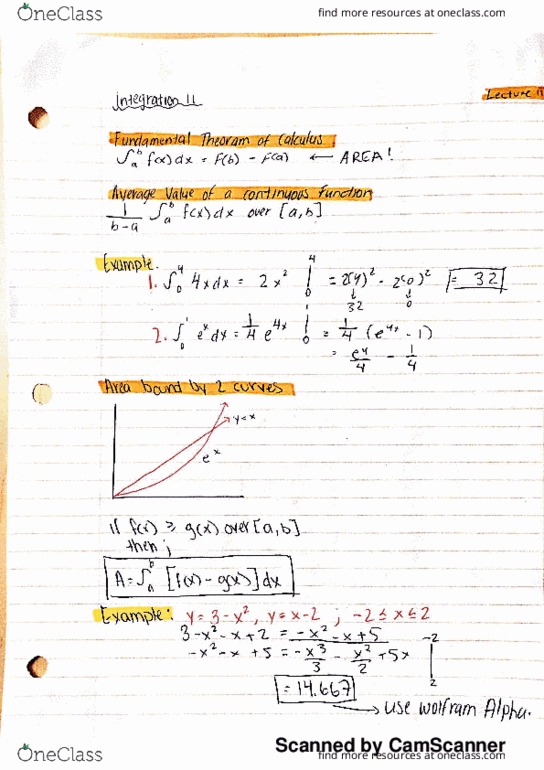 OneClass
find more resources at oneclass.com
Integration 11
Lecture 11
Fundamental Theoram of Calculus
∫ₐᵇ f(x)dx = F(b) - F(a) ← AREA!
Average Value of a continuous Function
1/(b-a) ∫ₐᵇ f(x)dx over [a,b]
Example.
1. ∫₀⁴ 4xdx = 2x² |₀⁴ = 2(4)² - 2(0)² = 32
32 0
2. ∫₀¹ eˣdx = 1/4 e⁴ˣ |₀¹ = 1/4 (e⁴ˣ - 1)
= e⁴/4 - 1/4
Area bound by 2 curves
y=x
eˣ
if f(x) ≥ g(x) over [a,b]
then;
A = ∫ₐᵇ [f(x) - g(x)]dx
Example: y = 3-x², y = x-2 ; -2 ≤ x ≤ 2
3-x²-x+2 = -x²-x+5
-x²-x+5 = -x³/3 - x²/2 + 5x |
-2
2
= 14.667
→ use Wolfram Alpha.
Scanned by CamScanner
OneClass
find more resources at oneclass.com